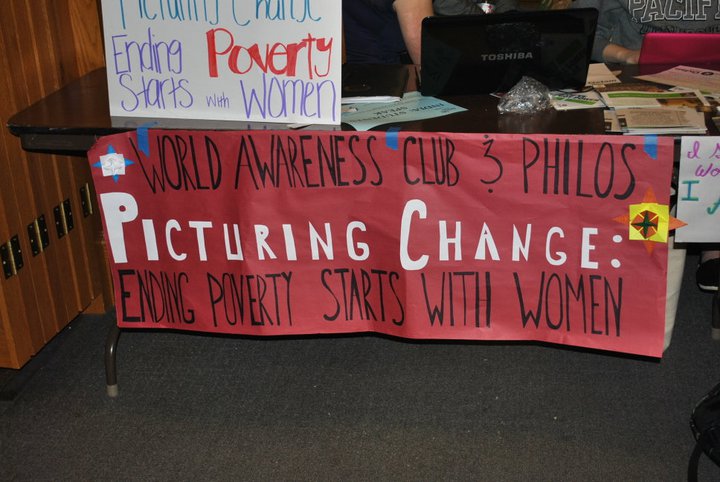 Picturing Change
Ending Poverty
Starts with Women
TOSHIBA
PACIFIC
WORLD AWARENESS CLUB & PHILOS
PICTURING CHANGE:
ENDING POVERTY STARTS WITH WOMEN
I